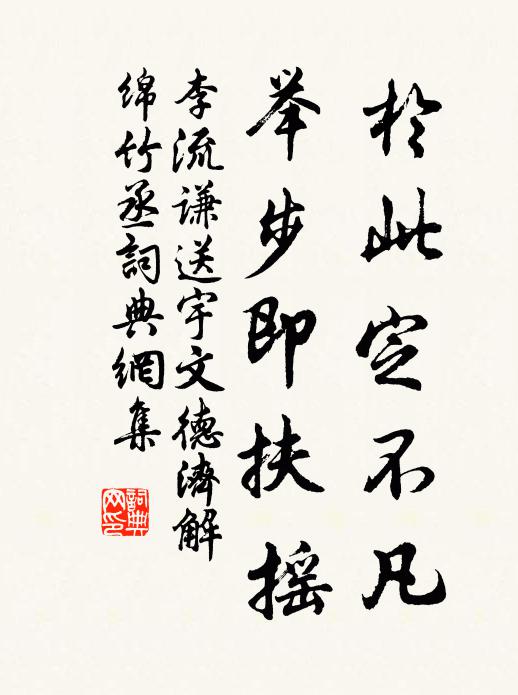 於此定不凡
举步即扶摇
李流谦送宇文德濟解
绵竹丞詞典網集
詞典网印